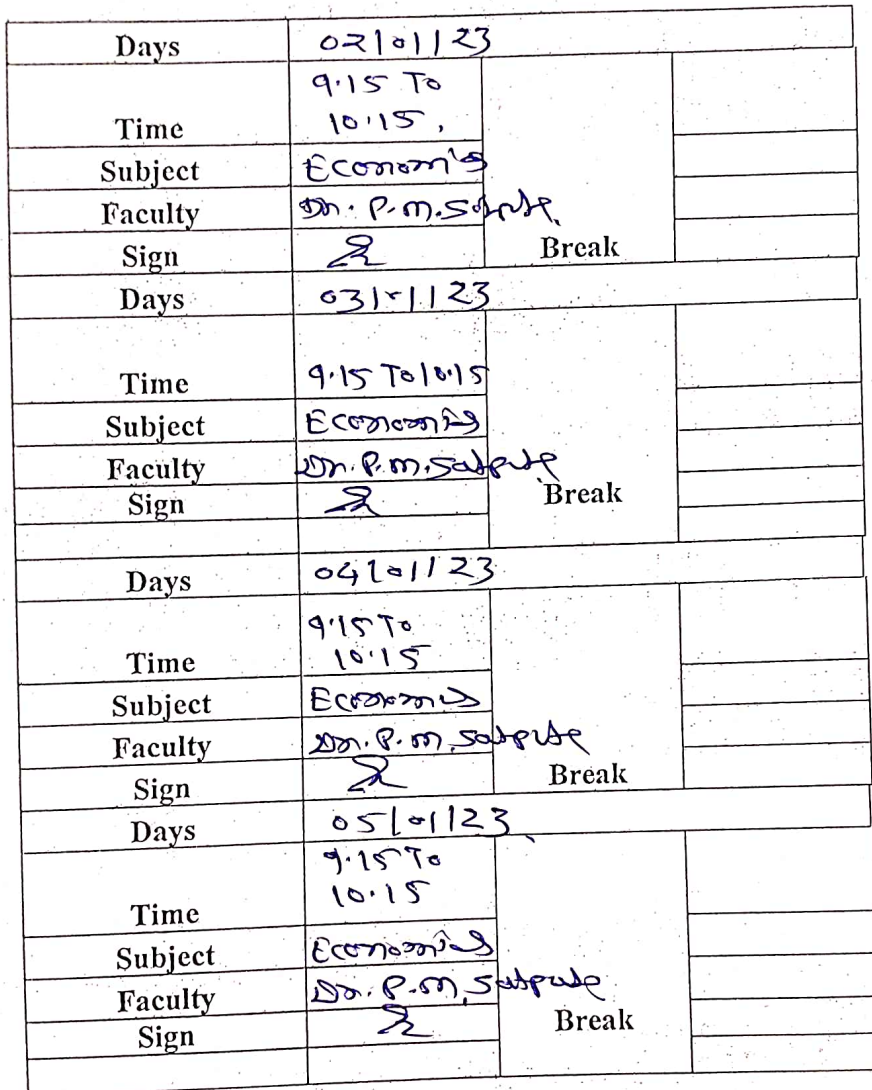 Days 02/01/23
9.15 To
Time 10.15,
Subject Economics
Faculty Dr. P.M. Satpute
Sign Break
Days 03/01/23
Time 9.15 To 10.15
Subject Economics
Faculty Dr. P.M. Satpute
Sign Break
Days 04/01/23
9.15 To
Time 10.15
Subject Economics
Faculty Dr. P.M. Satpute
Sign Break
Days 05/01/23
9.15 To
10.15
Time
Subject Economics
Faculty Dr. P.M. Satpute
Sign Break